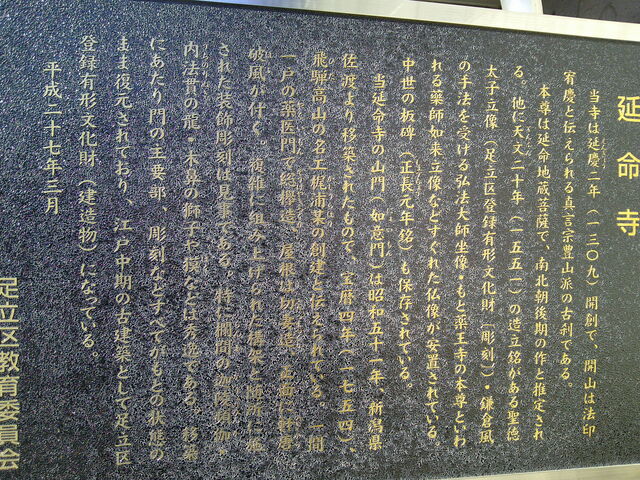 延命寺
当寺は延慶二年（一三〇九）開創で、開山は法印
宥慶と伝えられる真言宗豊山派の古刹である。
本尊は延命地蔵菩薩で、南北朝後期の作と推定され
る。他に天文二十年（一五五一）の造立銘がある聖徳
太子立像（足立区登録有形文化財（彫刻）・鎌倉風
の手法を受ける弘法大師坐像・もと薬王寺の本尊といわ
れる薬師如来立像などすぐれた仏像が安置されている。
中世の板碑（正長元年銘）も保存されている。
当延命寺の山門（如意門）は昭和五十一年、新潟県
佐渡より移築されたもので、宝暦四年（一七五四）、
飛騨高山の名工梶甫某の創建と伝えられている。一間
一戸の薬医門で総欅造、屋根は切妻造、正面に軒唐
破風が付く。複雑に組み上げられた構築と随所に施
された装飾彫刻は見事である。特に欄間の迦陵頻伽、
内法貫の龍・木鼻の獅子や獏などは秀逸である。移築
にあたり門の主要部、彫刻などすべてがもとの状態の
まま復元されており、江戸中期の古建築として足立区
登録有形文化財（建造物）になっている。
平成二十七年三月
足立区教育委員会